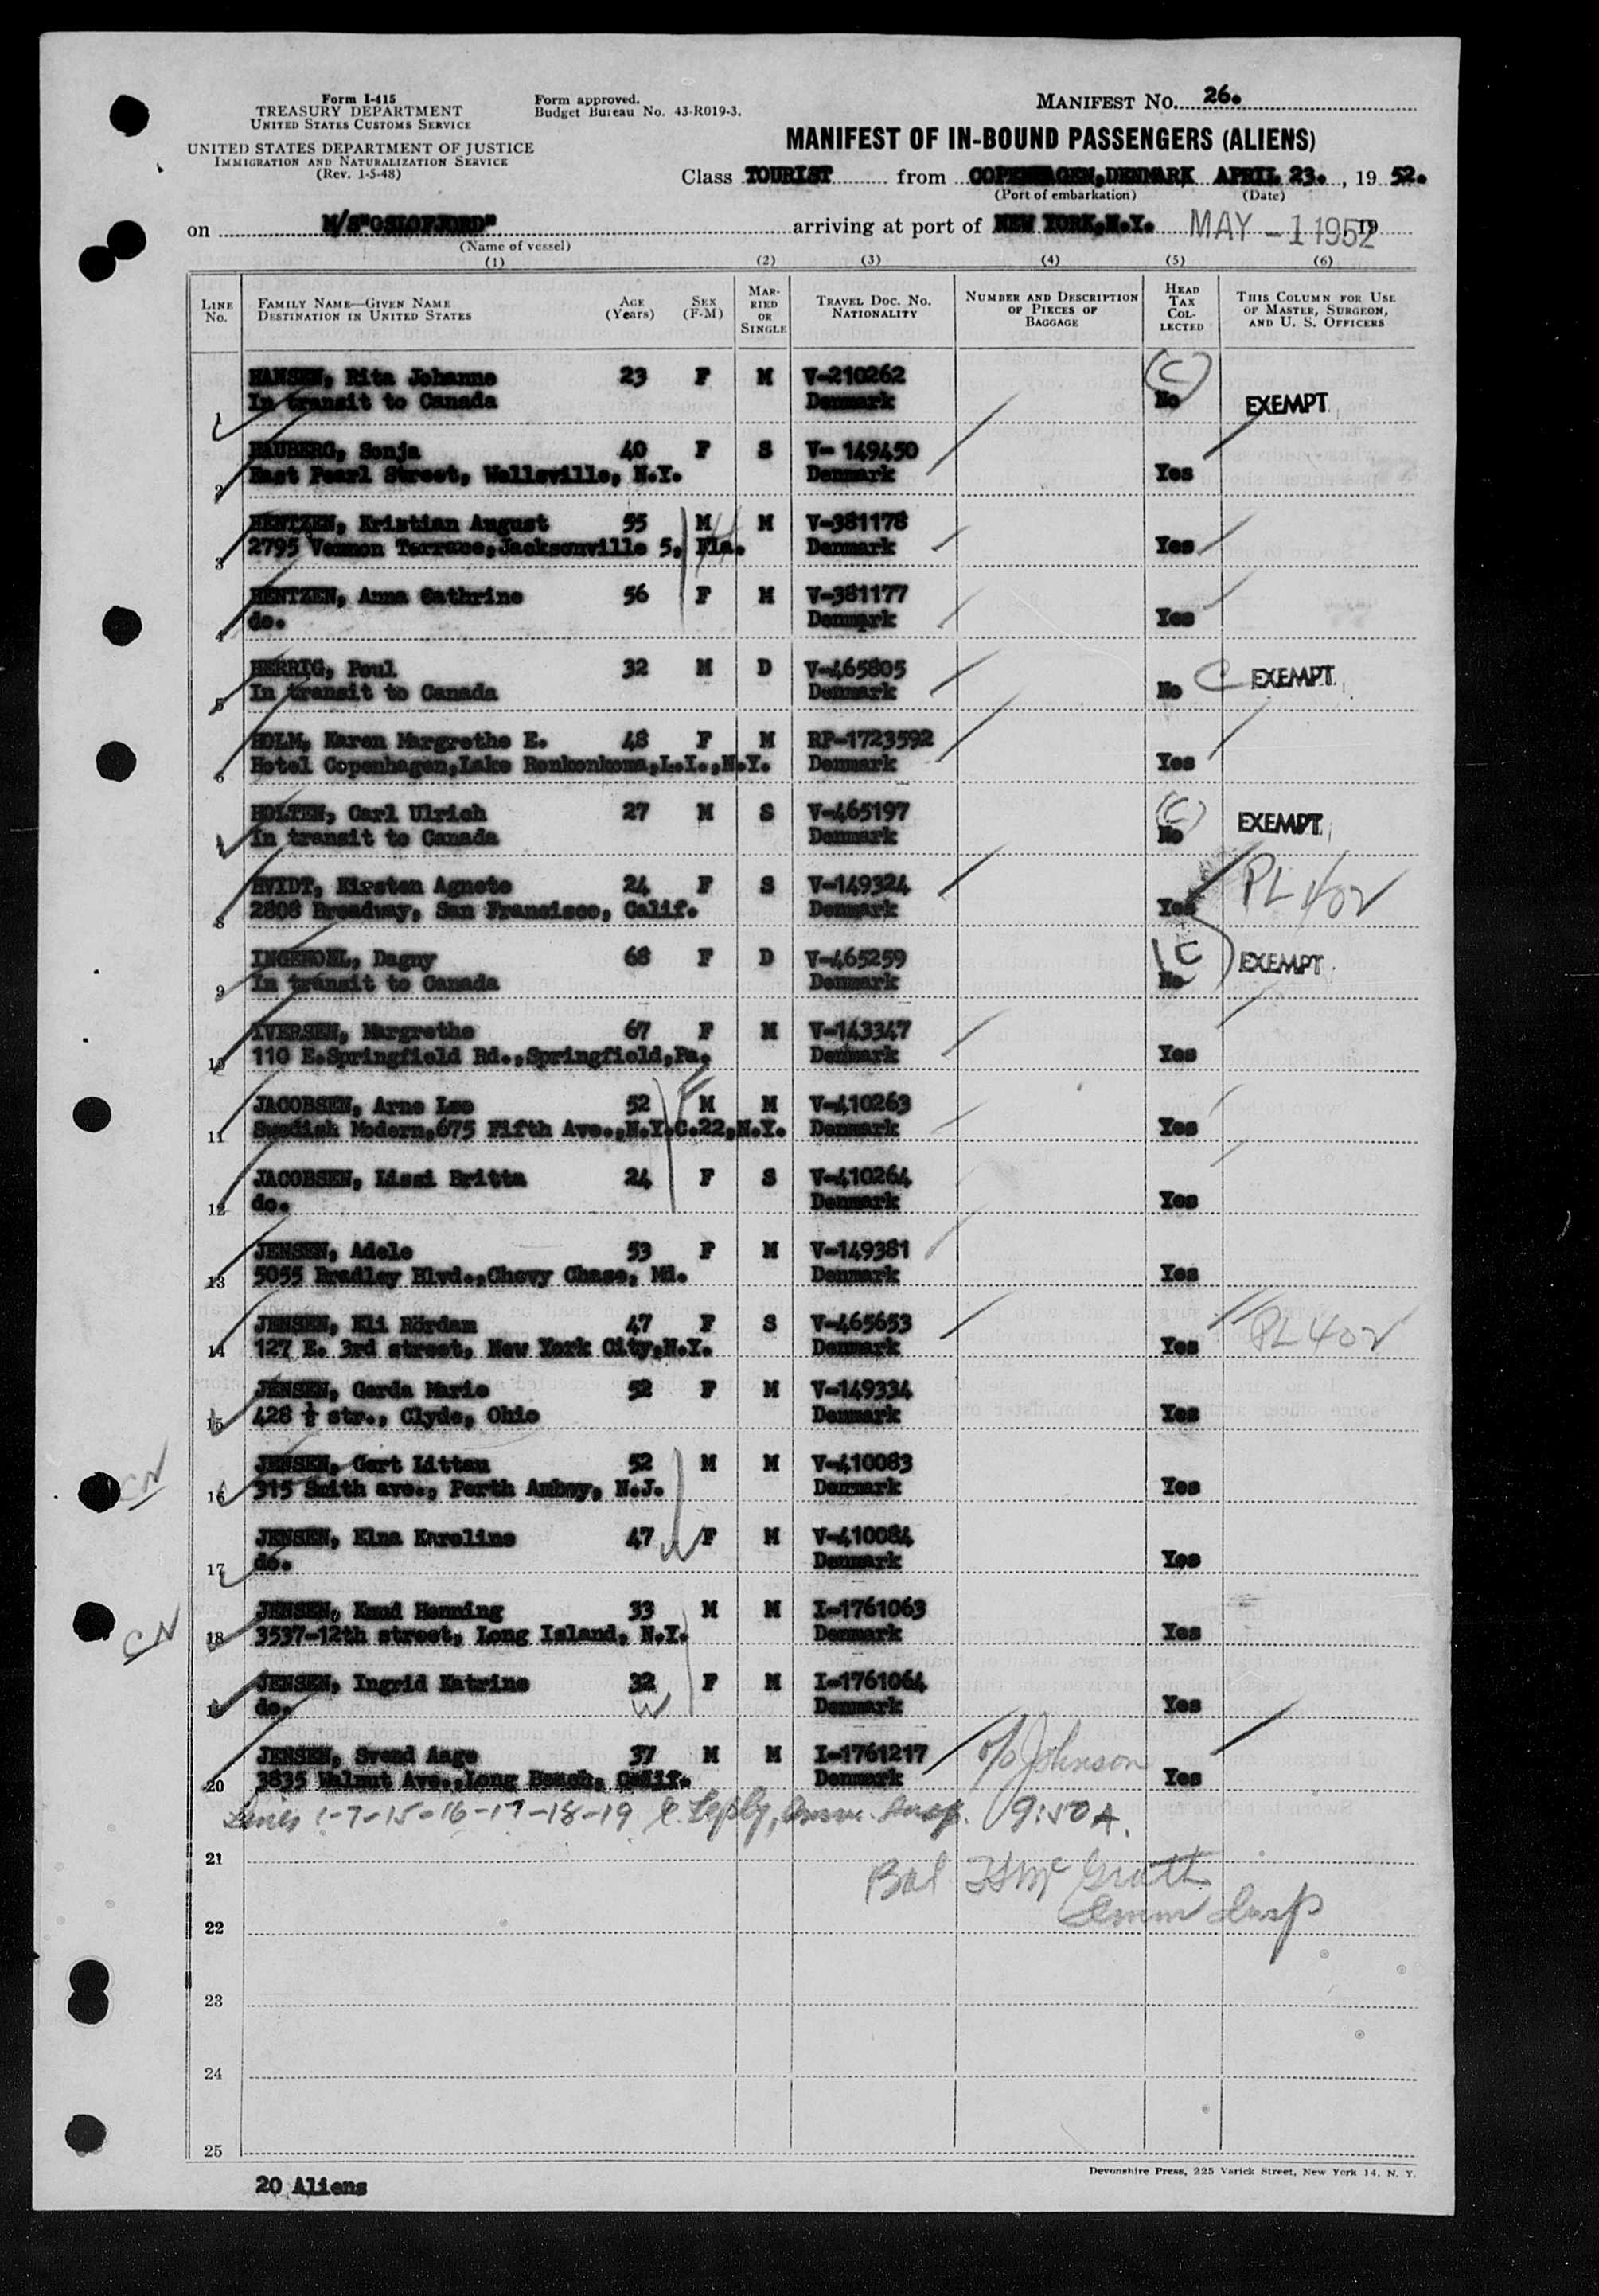 Form I-415
TREASURY DEPARTMENT
UNITED STATES CUSTOMS SERVICE
UNITED STATES DEPARTMENT OF JUSTICE
IMMIGRATION AND NATURALIZATION SERVICE
(Rev. 1-5-48)
Form approved.
Budget Bureau No. 43-R019-3.
MANIFEST No. 26.
MANIFEST OF IN-BOUND PASSENGERS (ALIENS)
Class TOURIST from COPENHAGEN, DENMARK APRIL 23. , 19 52.
(Port of embarkation) (Date)
on M/S"OSLOFJORD" arriving at port of NEW YORK,N.Y. MAY -1 1952 19
(Name of vessel)
(1) (2) (3) (4) (5) (6)
LINE No. FAMILY NAME—GIVEN NAME DESTINATION IN UNITED STATES AGE (Years) SEX (F-M) MARRIED OR SINGLE TRAVEL DOC. NO. NATIONALITY NUMBER AND DESCRIPTION OF PIECES OF BAGGAGE HEAD TAX COLLECTED THIS COLUMN FOR USE OF MASTER, SURGEON, AND U. S. OFFICERS
HANSEN, Rita Johanne 23 F M V-210262 (C)
1 In transit to Canada Denmark No EXEMPT
HAUBERG, Sonja 40 F S V- 149450
2 East Pearl Street, Wellsville, N.Y. Denmark Yes
HENTZEN, Kristian August 55 M M V-381178
3 2795 Vernon Terrace,Jacksonville 5, Fla. Denmark Yes
HENTZEN, Anna Cathrine 56 F M V-381177
4 do. Denmark Yes
HERRIG, Poul 32 M D V-465805
5 In transit to Canada Denmark No C EXEMPT
HOLM, Karen Margrethe E. 48 F M RP-1723592
6 Hotel Copenhagen,Lake Ronkonkoma,L.I.,N.Y. Denmark Yes
HOLTEN, Carl Ulrich 27 M S V-465197 (C)
In transit to Canada Denmark No EXEMPT
HVIDT, Kirsten Agnete 24 F S V-149324 PL 402
8 2808 Broadway, San Francisco, Calif. Denmark Yes
INGEHOEL, Dagny 68 F D V-465259 (C)
9 In transit to Canada Denmark No EXEMPT
IVERSEN, Margrethe 67 F M V-143347
10 110 E.Springfield Rd.,Springfield,Pa. Denmark Yes
JACOBSEN, Arne Leo 52 M M V-410263
11 Swedish Modern,675 Fifth Ave.,N.Y.C.22,N.Y. Denmark Yes
JACOBSEN, Lissi Britta 24 F S V-410264
12 do. Denmark Yes
JENSEN, Adele 53 F M V-149381
13 5055 Bradley Blvd.,Chevy Chase, Md. Denmark Yes
JENSEN, Eli Rördam 47 F S V-465653
14 127 E. 3rd street, New York City,N.Y. Denmark Yes PL 402
JENSEN, Gerda Marie 52 F M V-149334
15 428 ½ str., Clyde, Ohio Denmark Yes
JENSEN, Gert Littau 52 M M V-410083
CN 16 315 Smith ave., Perth Amboy, N.J. Denmark Yes
JENSEN, Elna Karoline 47 F M V-410084
17 do. Denmark Yes
JENSEN, Knud Henning 33 M M I-1761063
CN 18 3537-12th street, Long Island, N.Y. Denmark Yes
JENSEN, Ingrid Katrine 32 F M I-1761064
19 do. Denmark Yes
JENSEN, Svend Aage 37 M M I-1761217 Johnson
20 3835 Walnut Ave.,Long Beach, Calif. Denmark Yes
Lines 1-7-15-16-17-18-19 Imm. Insp. 9:50 A.
21
Bal McGrath
22 Imm Insp
23
24
25
20 Aliens
Devonshire Press, 225 Varick Street, New York 14, N. Y.